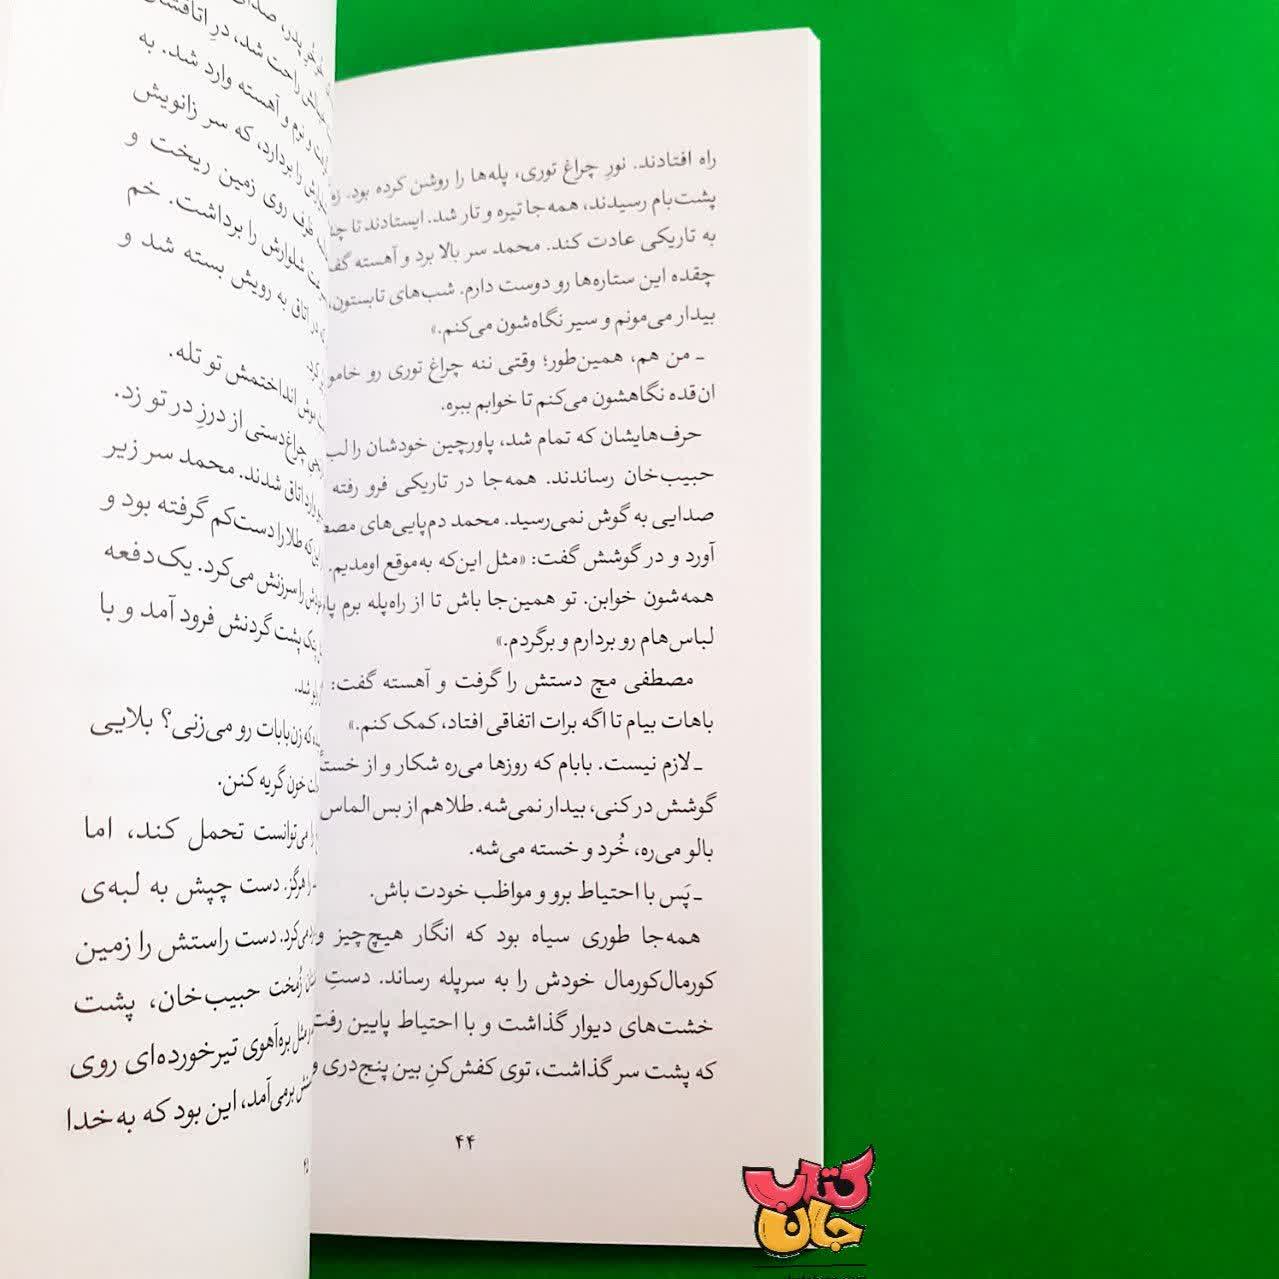 راه افتادند. نورِ چراغ توری، پله‌ها را روشن کرده بود.
پشت‌بام رسیدند، همه‌جا تیره و تار شد. ایستادند تا
به تاریکی عادت کند. محمد سر بالا برد و آهسته
چقده این ستاره‌ها رو دوست دارم. شب‌های تابستون،
بیدار می‌مونم و سیر نگاه‌شون می‌کنم.»
ـ من هم، همین‌طور؛ وقتی ننه چراغ توری رو
ان‌قده نگاهشون می‌کنم تا خوابم ببره.
حرف‌هایشان که تمام شد، پاورچین خودشان را لب
حبیب‌خان رساندند. همه‌جا در تاریکی فرو رفته
صدایی به گوش نمی‌رسید. محمد دم‌پایی‌های
آورد و در گوشش گفت: «مثل این‌که به‌موقع اومدیم.
همه‌شون خوابن. تو همین‌جا باش تا از راه‌پله برم
لباس‌هام رو بردارم و برگردم.»
مصطفی مچ دستش را گرفت و آهسته گفت:
باهات بیام تا اگه برات اتفاقی افتاد، کمک کنم.»
ـ لازم نیست. بابام که روزها می‌ره شکار و از
گوشش در کنی، بیدار نمی‌شه. طلاهم از بس الماس
بالو می‌ره، خُرد و خسته می‌شه.
ـ پَس با احتیاط برو و مواظب خودت باش.
همه‌جا طوری سیاه بود که انگار هیچ‌چیز و
کورمال‌کورمال خودش را به سرپله رساند. دستِ
خشت‌های دیوار گذاشت و با احتیاط پایین رفت
که پشت سر گذاشت، توی کفش‌کنِ بین پنج‌دری و
۴۴
پدر،
راحت شد، درِ
نرم و آهسته وارد شد. به
را بردارد، که سر زانویش
ظرف روی زمین ریخت و
شلوارش را برداشت. خم
در اتاق به رویش بسته شد و
کرد.
موش انداختمش تو تله.
چراغ‌دستی از درزِ در تو زد.
اتاق شدند. محمد سر زیر
که طلا را دست‌کم گرفته بود و
را سرزنش می‌کرد. یک‌دفعه
پشت گردنش فرود آمد و با
شد.
که زن‌بابات رو می‌زنی؟ بلایی
خون گریه کنن.
را می‌توانست تحمل کند، اما
هرگز. دست چپش به لبه‌ی
می‌کرد. دست راستش را زمین
زُمخت حبیب‌خان، پشت
مثل بره‌آهوی تیرخورده‌ای روی
برمی‌آمد، این بود که به‌خدا
کتاب
جان